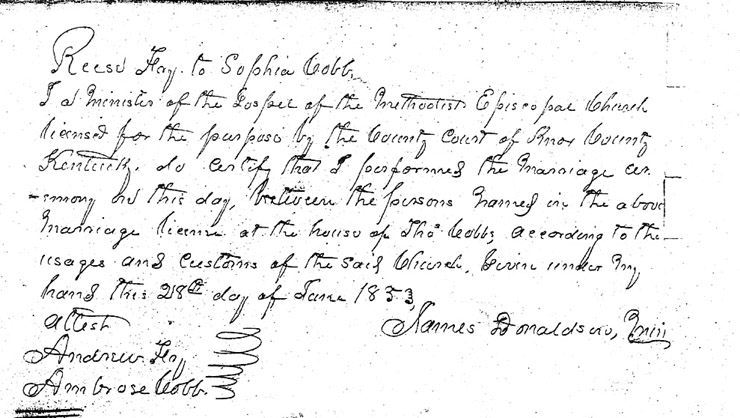 Reese Hay to Sophia Cobb
I a Minister of the Gospel of the Methodist Episcopal Church
licensed for the purpose by the County Court of Knox County
Kentucky. do certify that I performed the Marriage cer-
-emony on this day, between the persons named in the above
Marriage license at the house of Thos Cobbs according to the
usages and Customs of the said Church, Given under My
hand this 28th day of June 1853,
attest
James Donaldson,
Andrew Hay
Ambrose Cobb.